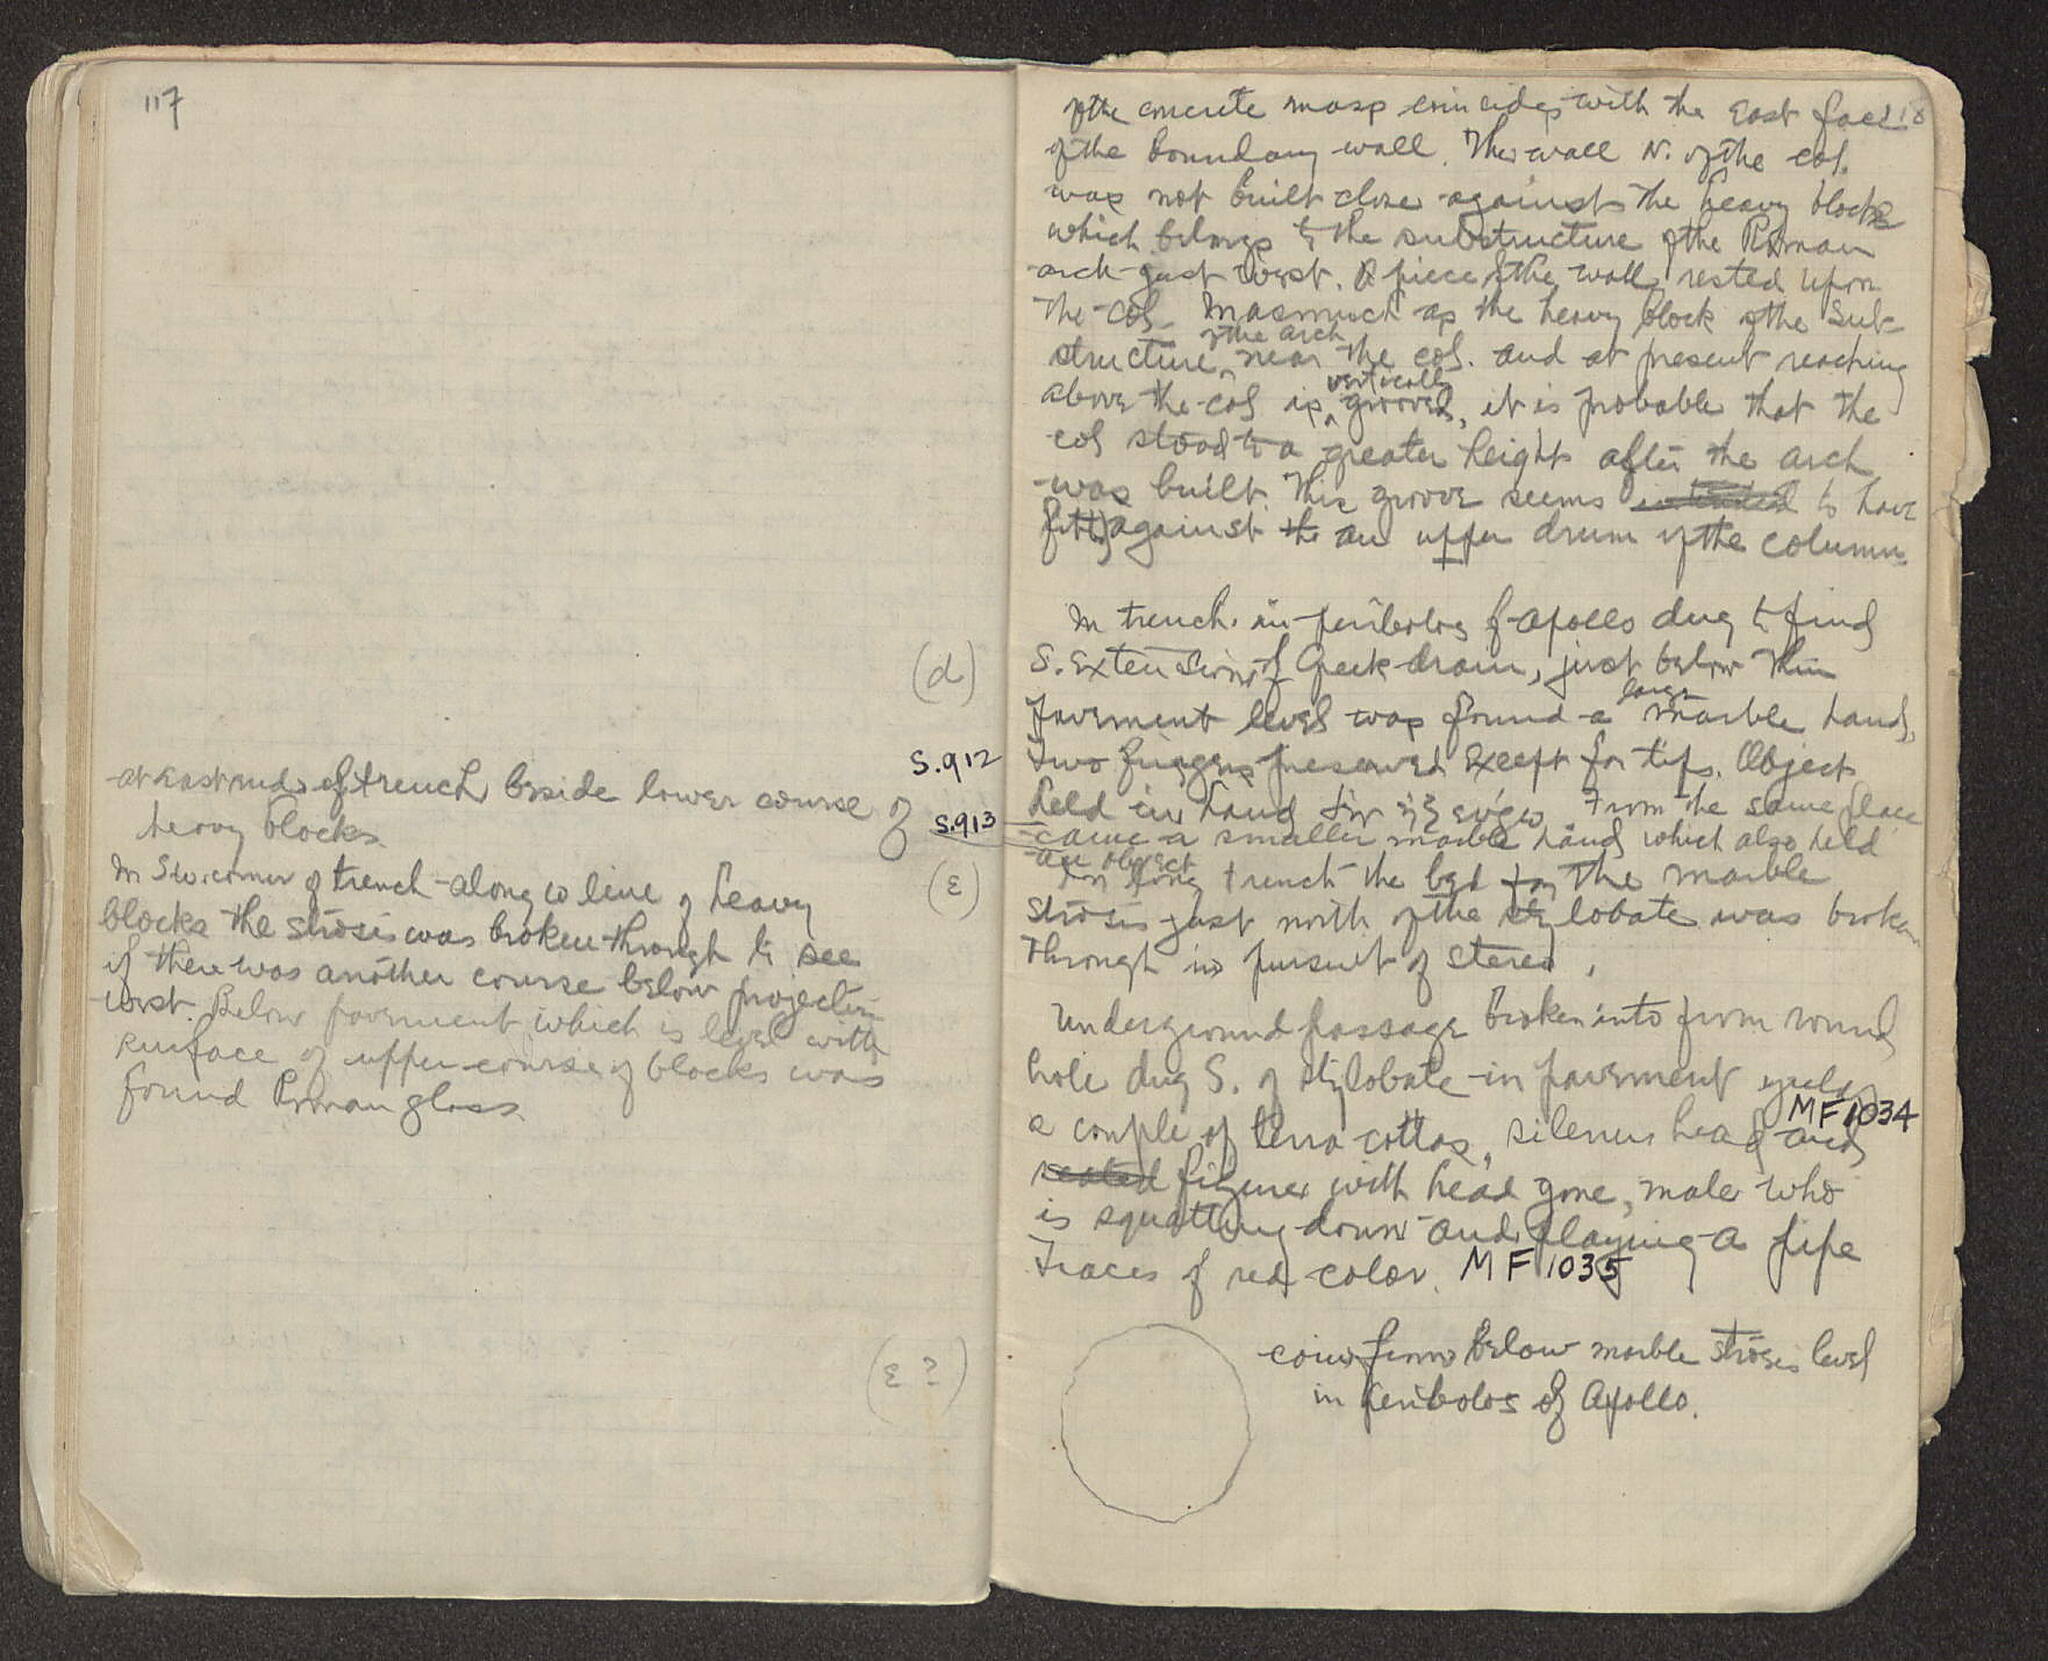 117
(d)
S.912
at East end of trench beside lower course of
heavy blocks
S.913
(ε)
In S.W. corner of trench along W line of heavy
blocks the strosis was broken through to see
if there was another course below projecting
west. Below pavement which is level with
surface of upper course of blocks was
found Roman glass
(ε ?)
118
of the concrete mass coincides with the East face
of the boundary wall. The wall N. of the col.
was not built close against the heavy blocks
which belongs to the substructure of the Roman
arch just west. A piece of the wall rested upon
the col. Inasmuch as the heavy block of the sub-
structure of the arch near the col. and at present reaching
above the col is vertically grooved, it is probable that the
col stood to a greater height after the arch
was built. This groove seems intended to have
fitted against the an upper drum of the column.
In trench in peribolos of Apollo dug to find
S. extension of Greek drain, just below thin
pavement level was found a large marble hand,
two fingers preserved except for tips. Object
held in hand. From the same place
came a smaller marble hand which also held
an object
In long trench the bed for the marble
strosis just north of the stylobate was broken
through in pursuit of stereo.
Underground passage broken into from round
hole dug S. of stylobate in pavement yields
a couple of terra-cottas, silenus head and MF 1034
seated figure with head gone, male who
is squatting down and playing a pipe
Traces of red color. MF 1035
coin from below marble strosis level
in peribolos of Apollo.